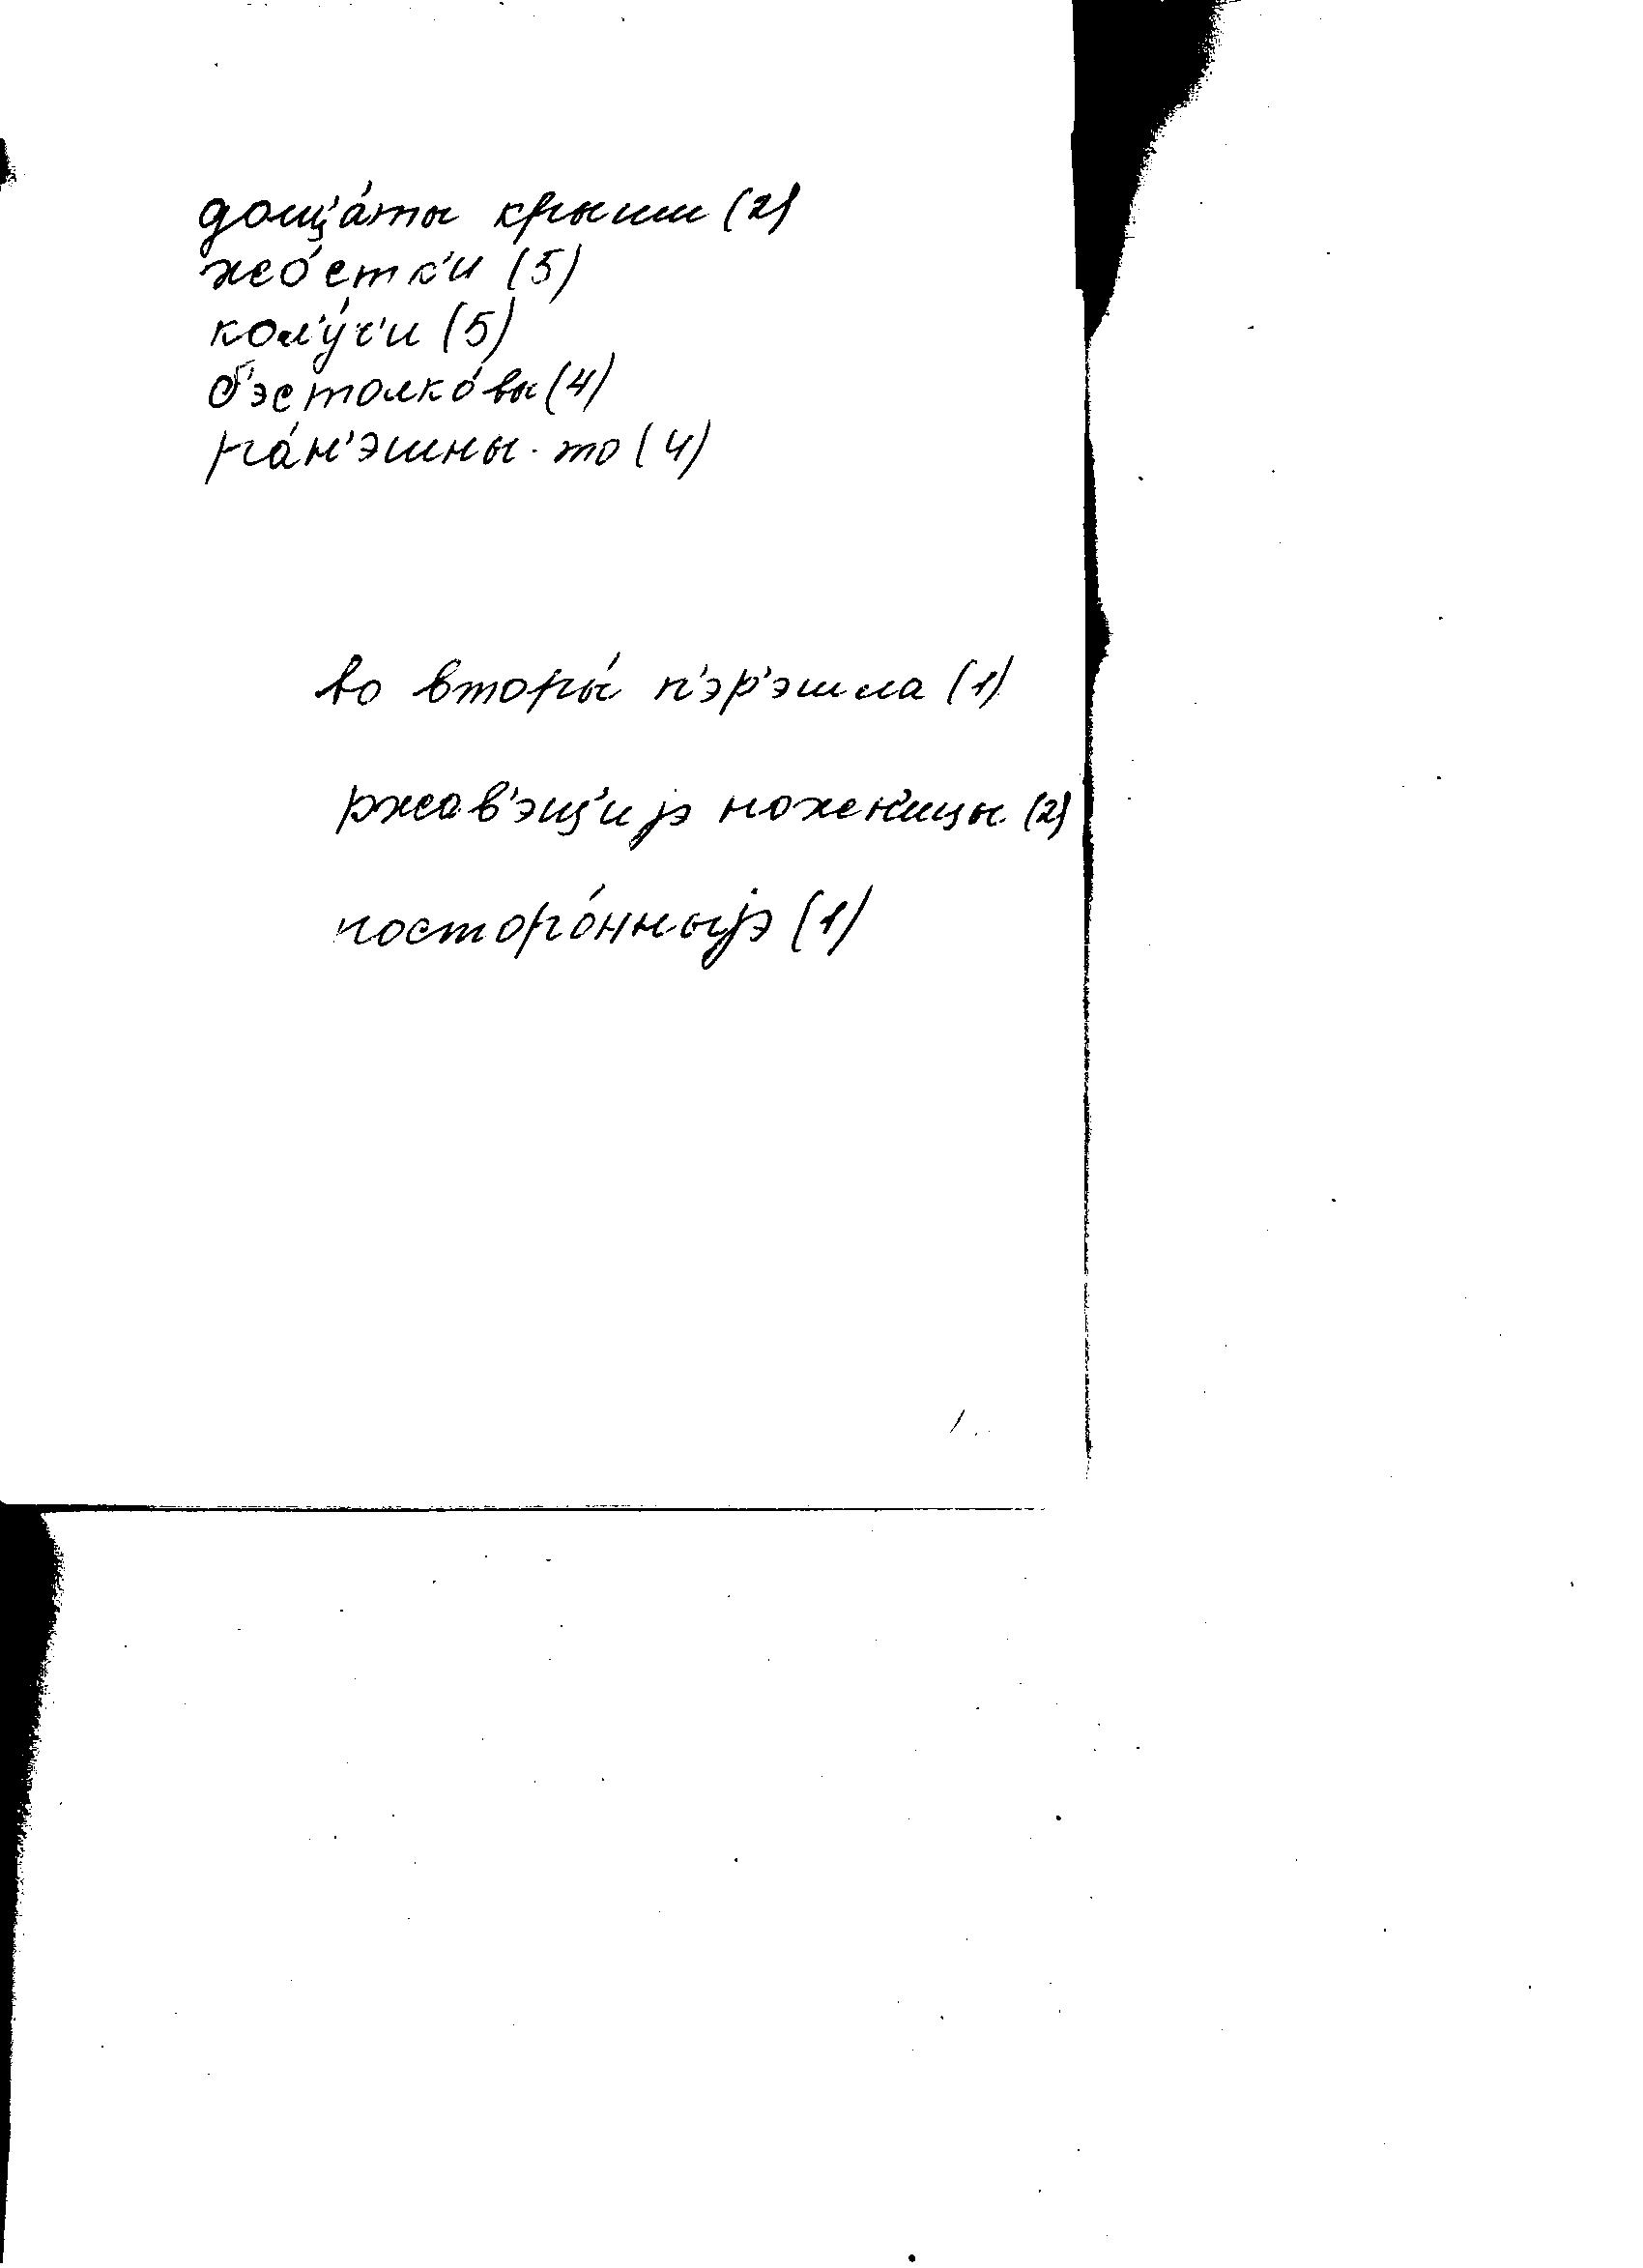 дощ'а́ты крыши (2)
жо́стк'и (5)
кол'у́ч'и (5)
б'эстолко́вы (4)
ра́н'эшны-то (4)
во вторы́ п'эр'эшла (1)
ржав'эщ'иjэ ножен'ицы (2)
посторо́нныjэ (1)